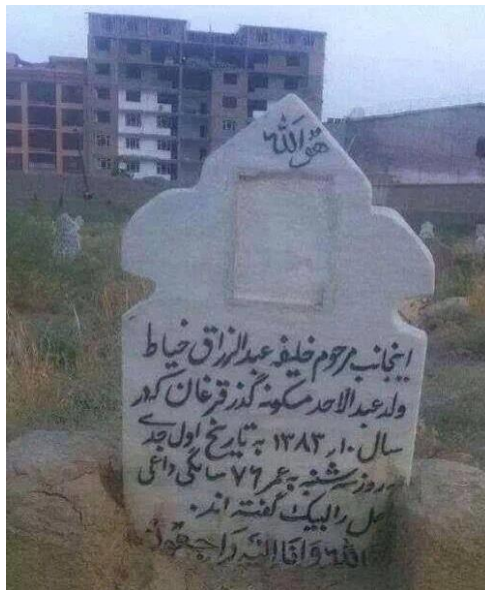 هو الله
اینجانب مرحوم خلیفه عبدالرزاق خیاط
ولد عبدالاحد مسکونه گذر قرغان که در
سال ۱۳۸۳٫۱۰ به تاریخ اول جدی
روز سه شنبه به عمر ۷۶ سالگی داعی
را لبیک گفته اند.
لله وانا الیه راجعون